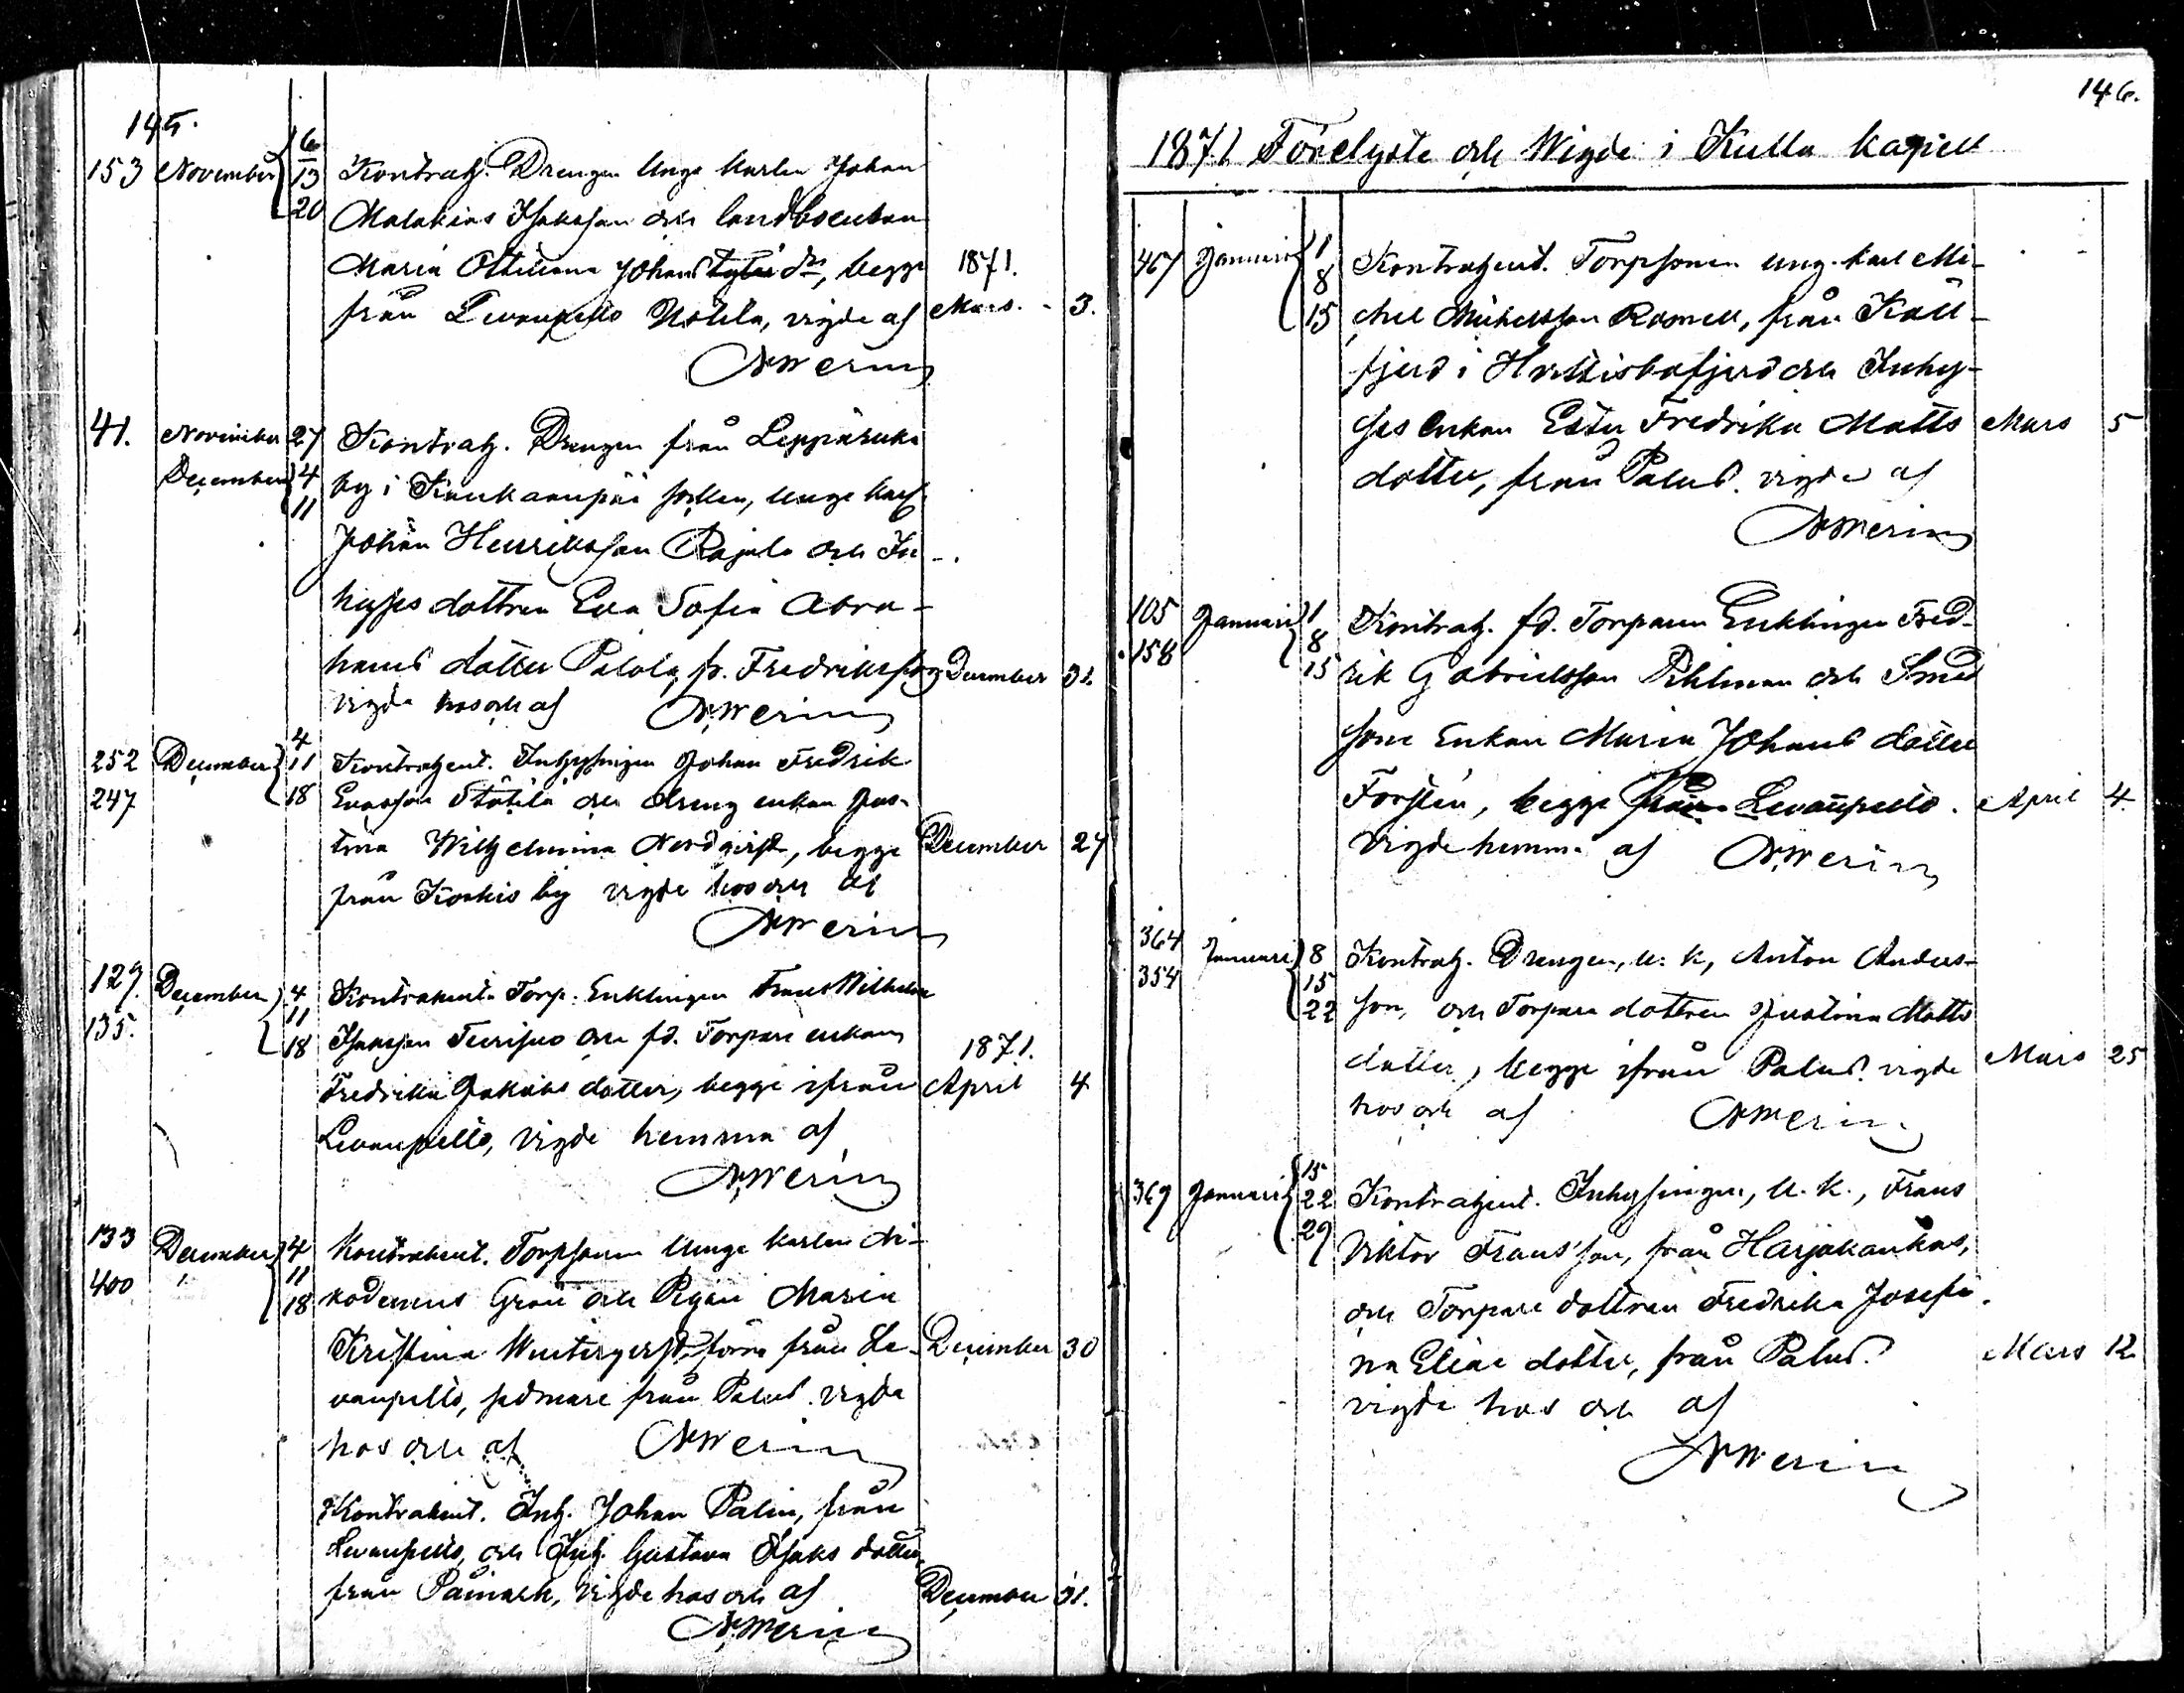 145.
153 November 6 Kontrah. Drengen Unge karlen Johan
13
20 Malakias Isaksson och landboenkan
Maria Ottiliana Johans dr, begge 1871.
från Levanpelto Uotila, vigde af Mars. 3.
NWerin
41. November 27 Kontrah. Drengen från Leppäruka
December 4 by i Kankaanpää socken, unge karl
11
Johan Henriksson Rajala och In-
hyses dottren Eva Sofia Abra-
hams dotter Palola, fr. Fredriksfors December 31.
vigde hos och af NWerin
252 December 4
11 Kontrahent. Inhysingen Johan Fredrik
247 18 Enoksson och dreng enkan Jus-
tina Wilhelmina Nordqvist, begge December 27
från Korkis by vigde hos och af
NWerin
129. December 4 Kontrahent. Torp. Enklingen Frans Wilhelm
135. 11
18 Isaksson och fd. Torpare enkan 1871.
Fredrika Jakobs dotter, begge ifrån April 4
Levanpelto, vigde hemma af
NWerin
133 December 4 Kontrahent. Torpsonen Unge karlen Ni-
400 11
18 kodemus Grön och Pigan Maria
Kristina Winterqvist, förra från Le- December 30
vanpelto, sednare från Palus. vigde
hos och af NWerin
Kontrahent. Inh. Johan Palin, från
Levanpelto, och Inh. Gustava Isaks dotter,
från Påmark, vigde hos och af December 31.
NWerin
146.
1871 Förelyste och Wigde i Kulla kapell
467 Januari 1 Kontrahent. Torpsonen ung. karl Mi-
8
15 chel Michelsson Rosnell, från Käll-
fjerd i Hvittisbofjerd och Inhy-
ses enkan Ester Fredrika Matts Mars 5
dotter, från Palus. vigde af
NWerin
105 Januari 1 Kontrah. fd. Torparen Enklingen Fred-
158 8
15 rik Gabrielsson Pihlman och Smed
sons Enkan Maria Johans dotter
Forstén, begge från Levanpelto. April 4.
vigde hemma af NWerin
364 Januari 8 Kontrah. Drengen, u. k, Anton Anders-
354 15
22 son, och Torpare dottren Justina Matts
dotter, begge ifrån Palus. vigde Mars 25
hos och af NWerin
369 Januari 15
22 Kontrahent. Inhysingen, u. k., Frans
29 Viktor Frans'son, från Harjakankas,
och Torpare dottren Fredrika Josefi-
na Elias dotter, från Palus. Mars 12
vigde hos och af
NWerin